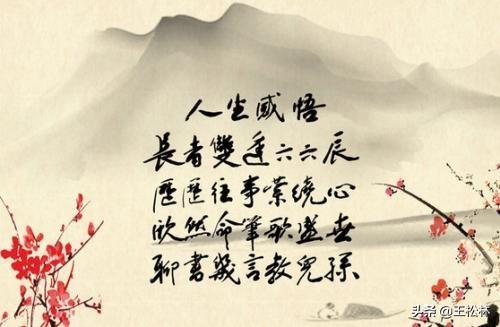 人生感悟
長者雙逢六六辰
歷歷往事縈繞心
欣然命筆歌盛世
聊書幾言教兒孫
头条 @王松林